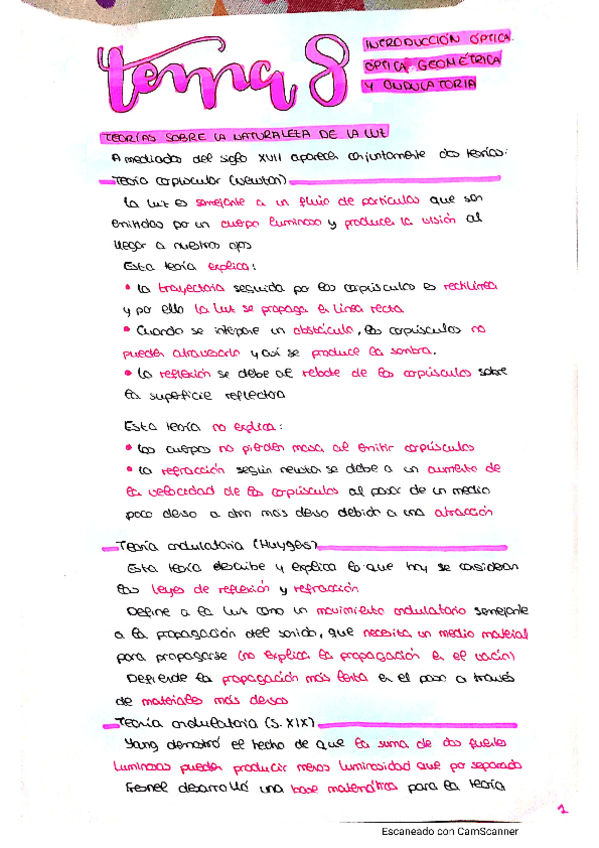 tema 8
INTRODUCCIÓN ÓPTICA.
ÓPTICA GEOMÉTRICA
Y ONDULATORIA
TEORÍAS SOBRE LA NATURALEZA DE LA LUZ
A mediados del siglo XVII aparecen conjuntamente dos teorías:
Teoría corpuscular (Newton)
La luz es semejante a un fluio de partículas que son
emitidas por un cuerpo luminoso y produce la visión al
llegar a nuestros ojos
Esta teoría explica:
• La trayectoria seguida por los corpúsculos es rectilínea
y por ello la luz se propaga en línea recta
• Cuando se interpone un obstáculo, los corpúsculos no
pueden atravesarlo y así se produce la sombra.
• La reflexión se debe al rebote de los corpúsculos sobre
la superficie reflectora
Esta teoría no explica:
• Los cuerpos no pierden masa al emitir corpúsculos
• La refracción según newton se debe a un aumento de
la velocidad de los corpúsculos al pasar de un medio
poco denso a otro más denso debido a una atracción
Teoría ondulatoria (Huygens)
Esta teoría describe y explica lo que hoy se consideran
las leyes de reflexión y refracción
Define a la luz como un movimiento ondulatorio semejante
a la propagación del sonido, que necesita un medio material
para propagarse (no explica la propagación en el vacío)
Defiende la propagación más lenta en el paso a través
de materiales más densos
Teoría ondulatoria (S. XIX)
Yang demostró el hecho de que la suma de dos fuentes
luminosas pueden producir menos luminosidad que por separado
Fresnel desarrolló una base matemática para la teoría
1
Escaneado con CamScanner